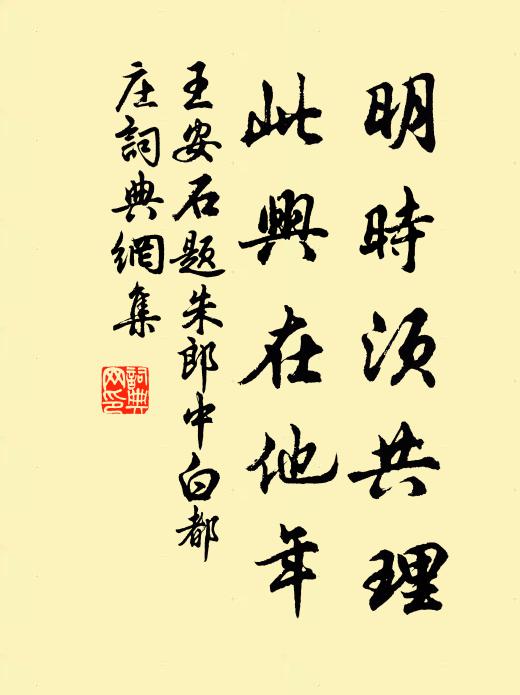 明時須共理
此興在他年
王安石題朱郎中白都
庄詞典網集
詞典
网印